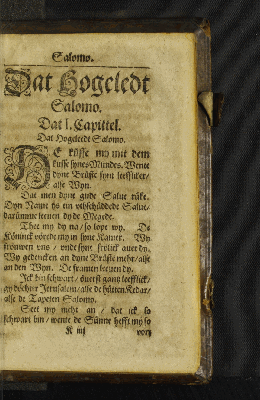 Salomo.
Dat Hogeledt
Salomo.
Dat I. Capittel.
Dat Hogeledt Salomo.
HE küsse my mit dem
Kusse synes Mundes. Wente
dyne Brüste synt leeffliker/
alse Wyn.
Dat men dyne gude Salve rüke.
Dyn Name ys ein uthschüddede Salve/
darümme leeven dy de Megede.
Thee my dy na/ so lope wy. De
Köninck vörede my in syne Kamer. Wy
frouwen uns/ unde synt frölick aver dy.
Wy gedencken an dyne Brüste mehr/ alse
an den Wyn. De framen leeven dy.
Ick bin schwart/ överst gantz leefflick/
gy döchter Jerusalem/ alse de hütten Kedar/
alse de Tapeten Salomo.
Seet my nicht an/ dat ick so
schwart bin/ wente de Sünne hefft my so
K iij